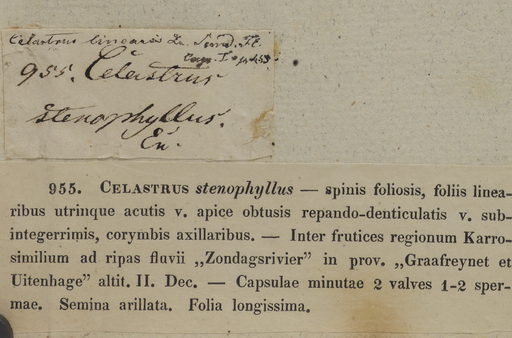 Celastrus linearis Ln. Sond. Fl.
Cap. I. p. 453
955. Celastrus
stenophyllus.
955. CELASTRUS stenophyllus — spinis foliosis, foliis linea-
ribus utrinque acutis v. apice obtusis repando-denticulatis v. sub-
integerrimis, corymbis axillaribus. — Inter frutices regionum Karro-
similium ad ripas fluvii „Zondagsrivier” in prov. „Graafreynet et
Uitenhage” altit. II. Dec. — Capsulae minutae 2 valves 1-2 sper-
mae. Semina arillata. Folia longissima.